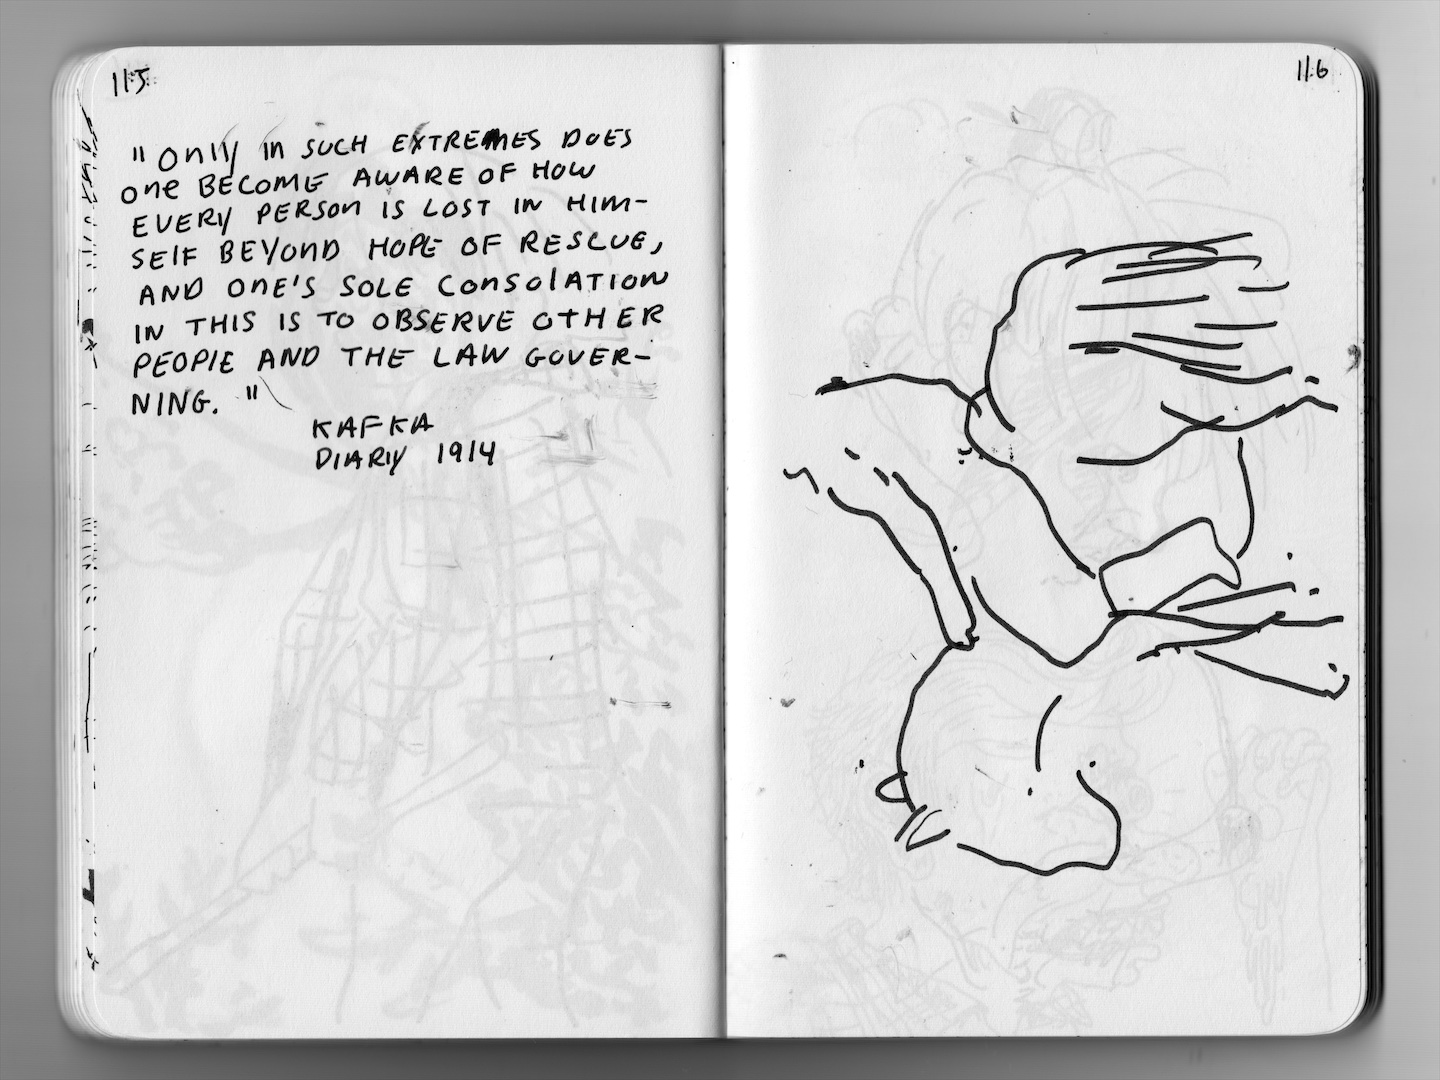 115
"Only in SUCH EXTREMES DOES
one BECOME AWARE OF HOW
EVERY PERSON IS LOST IN HIM-
SELF BEYOND HOPE OF RESCUE,
AND ONE'S SOLE CONSOLATION
IN THIS IS TO OBSERVE OTHER
PEOPLE AND THE LAW GOVER-
NING."
KAFKA
DIARY 1914
116